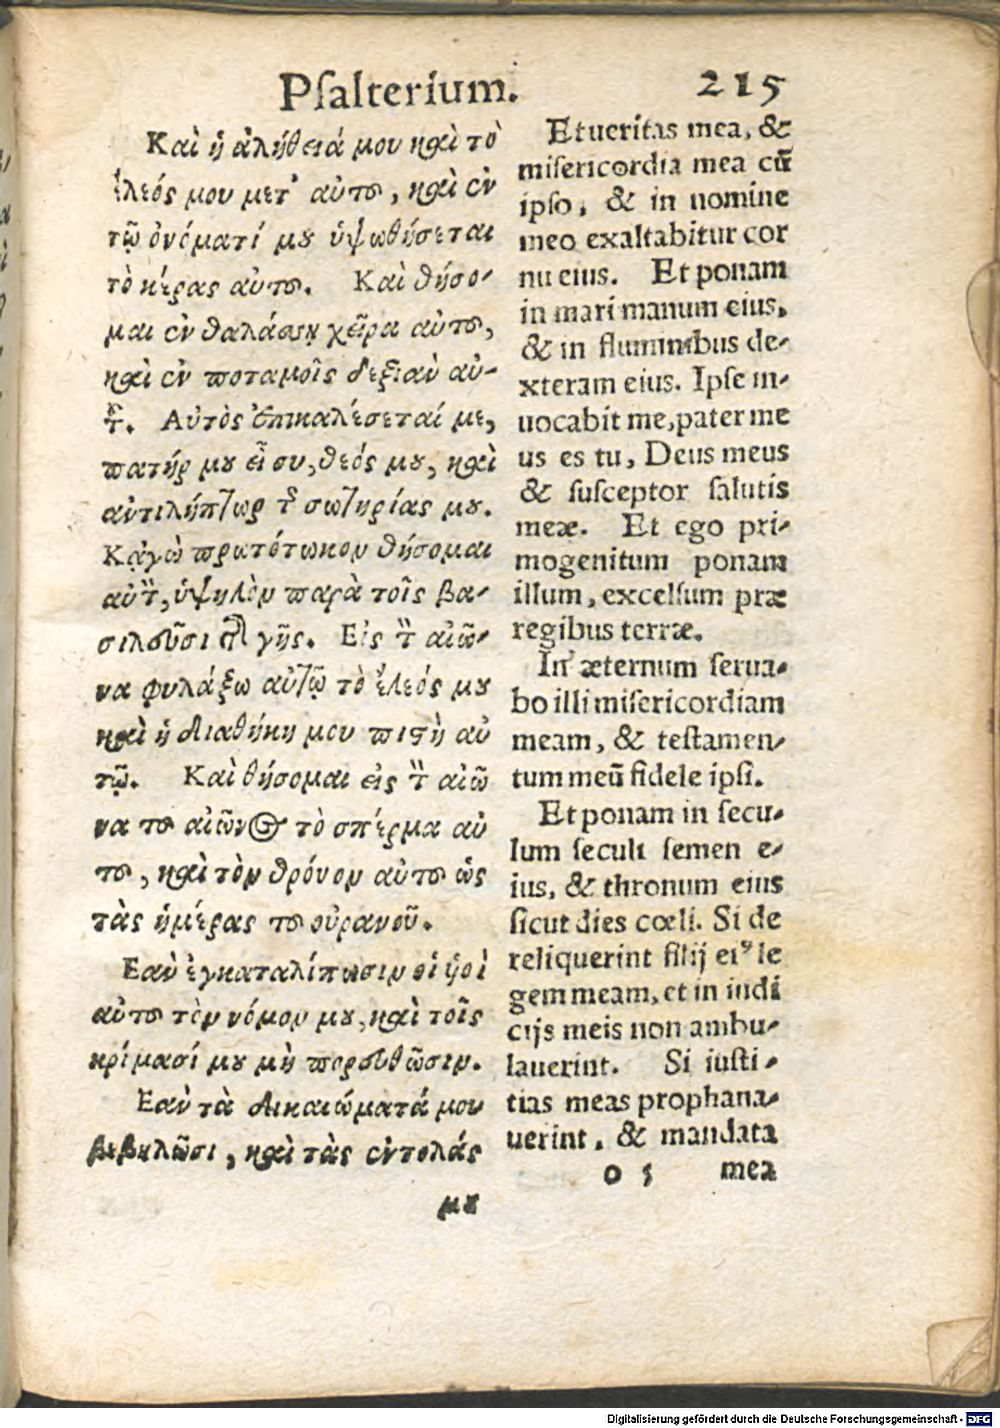 Psalterium. 215
Καὶ ἡ ἀλήθειά μου καὶ τὸ
ἔλεός μου μετ' αὐτοῦ, καὶ ἐν
τῷ ὀνόματί μου ὑψωθήσεται
τὸ κέρας αὐτοῦ. Καὶ θήσο-
μαι ἐν θαλάσσῃ χεῖρα αὐτοῦ,
καὶ ἐν ποταμοῖς δεξιὰν αὐ-
τοῦ. Αὐτὸς ἐπικαλέσεταί με,
πατήρ μου εἶ συ, θεός μου, καὶ
ἀντιλήπτωρ τῆς σωτηρίας μου.
Κᾀγὼ πρωτότωκον θήσομαι
αὐτὸν, ὑψηλὸν παρὰ τοῖς βα-
σιλεῦσι τῆς γῆς. Εἰς τὸν αἰῶ-
να φυλάξω αὐτῷ τὸ ἔλεός μου
καὶ ἡ διαθήκη μου πιστὴ αὐ
τῷ. Καὶ θήσομαι εἰς τὸν αἰῶ
να τοῦ αἰῶνος τὸ σπέρμα αὐ
τοῦ, καὶ τὸν θρόνον αὐτοῦ ὡς
τὰς ἡμέρας τοῦ οὐρανοῦ.
Εὰν ἐγκαταλίπωσιν οἱ ὑοὶ
αὐτοῦ τὸν νόμον μου, καὶ τοῖς
κρίμασί μου μὴ πορευθῶσιν.
Εὰν τὰ δικαιώματά μου
βεβηλῶσι, καὶ τὰς ἐντολάς
μου
Et ueritas mea, &
misericordia mea cũ
ipso, & in nomine
meo exaltabitur cor
nu eius. Et ponam
in mari manum eius,
& in fluminibus de-
xteram eius. Ipse in-
uocabit me, pater me
us es tu, Deus meus
& susceptor salutis
meæ. Et ego pri-
mogenitum ponam
illum, excelsum præ
regibus terræ.
In æternum serua-
bo illi misericordiam
meam, & testamen-
tum meũ fidele ipsi.
Et ponam in secu-
lum seculi semen e-
ius, & thronum eius
sicut dies cœli. Si de
reliquerint filij eiꝰ le
gem meam, et in iudi
cijs meis non ambu-
lauerint. Si iusti-
tias meas prophana-
uerint, & mandata
o 5 mea
Digitalisierung gefördert durch die Deutsche Forschungsgemeinschaft - DFG